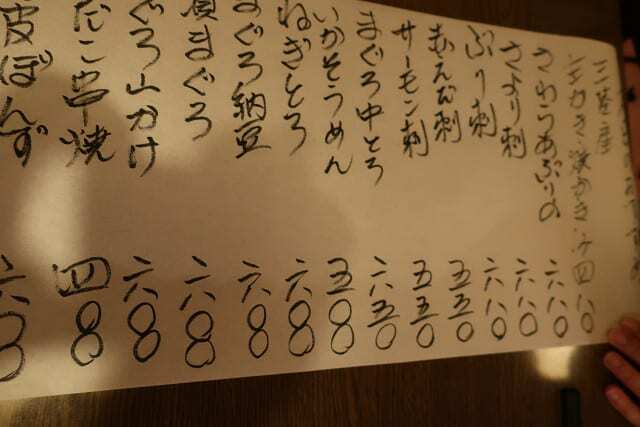 三陸産
生かき・焼かき・ 四八〇
さわらあぶり 六八〇
さより刺 六八〇
ぶり刺 六八〇
赤えび刺 五五〇
サーモン刺 五五〇
まぐろ中とろ 六五〇
いかそうめん 五〇〇
ねぎとろ 六〇〇
まぐろ納豆 六〇〇
漬まぐろ 六〇〇
ぐろ山かけ 六〇〇
たこ串焼 四〇〇
皮ぽんず 六〇〇